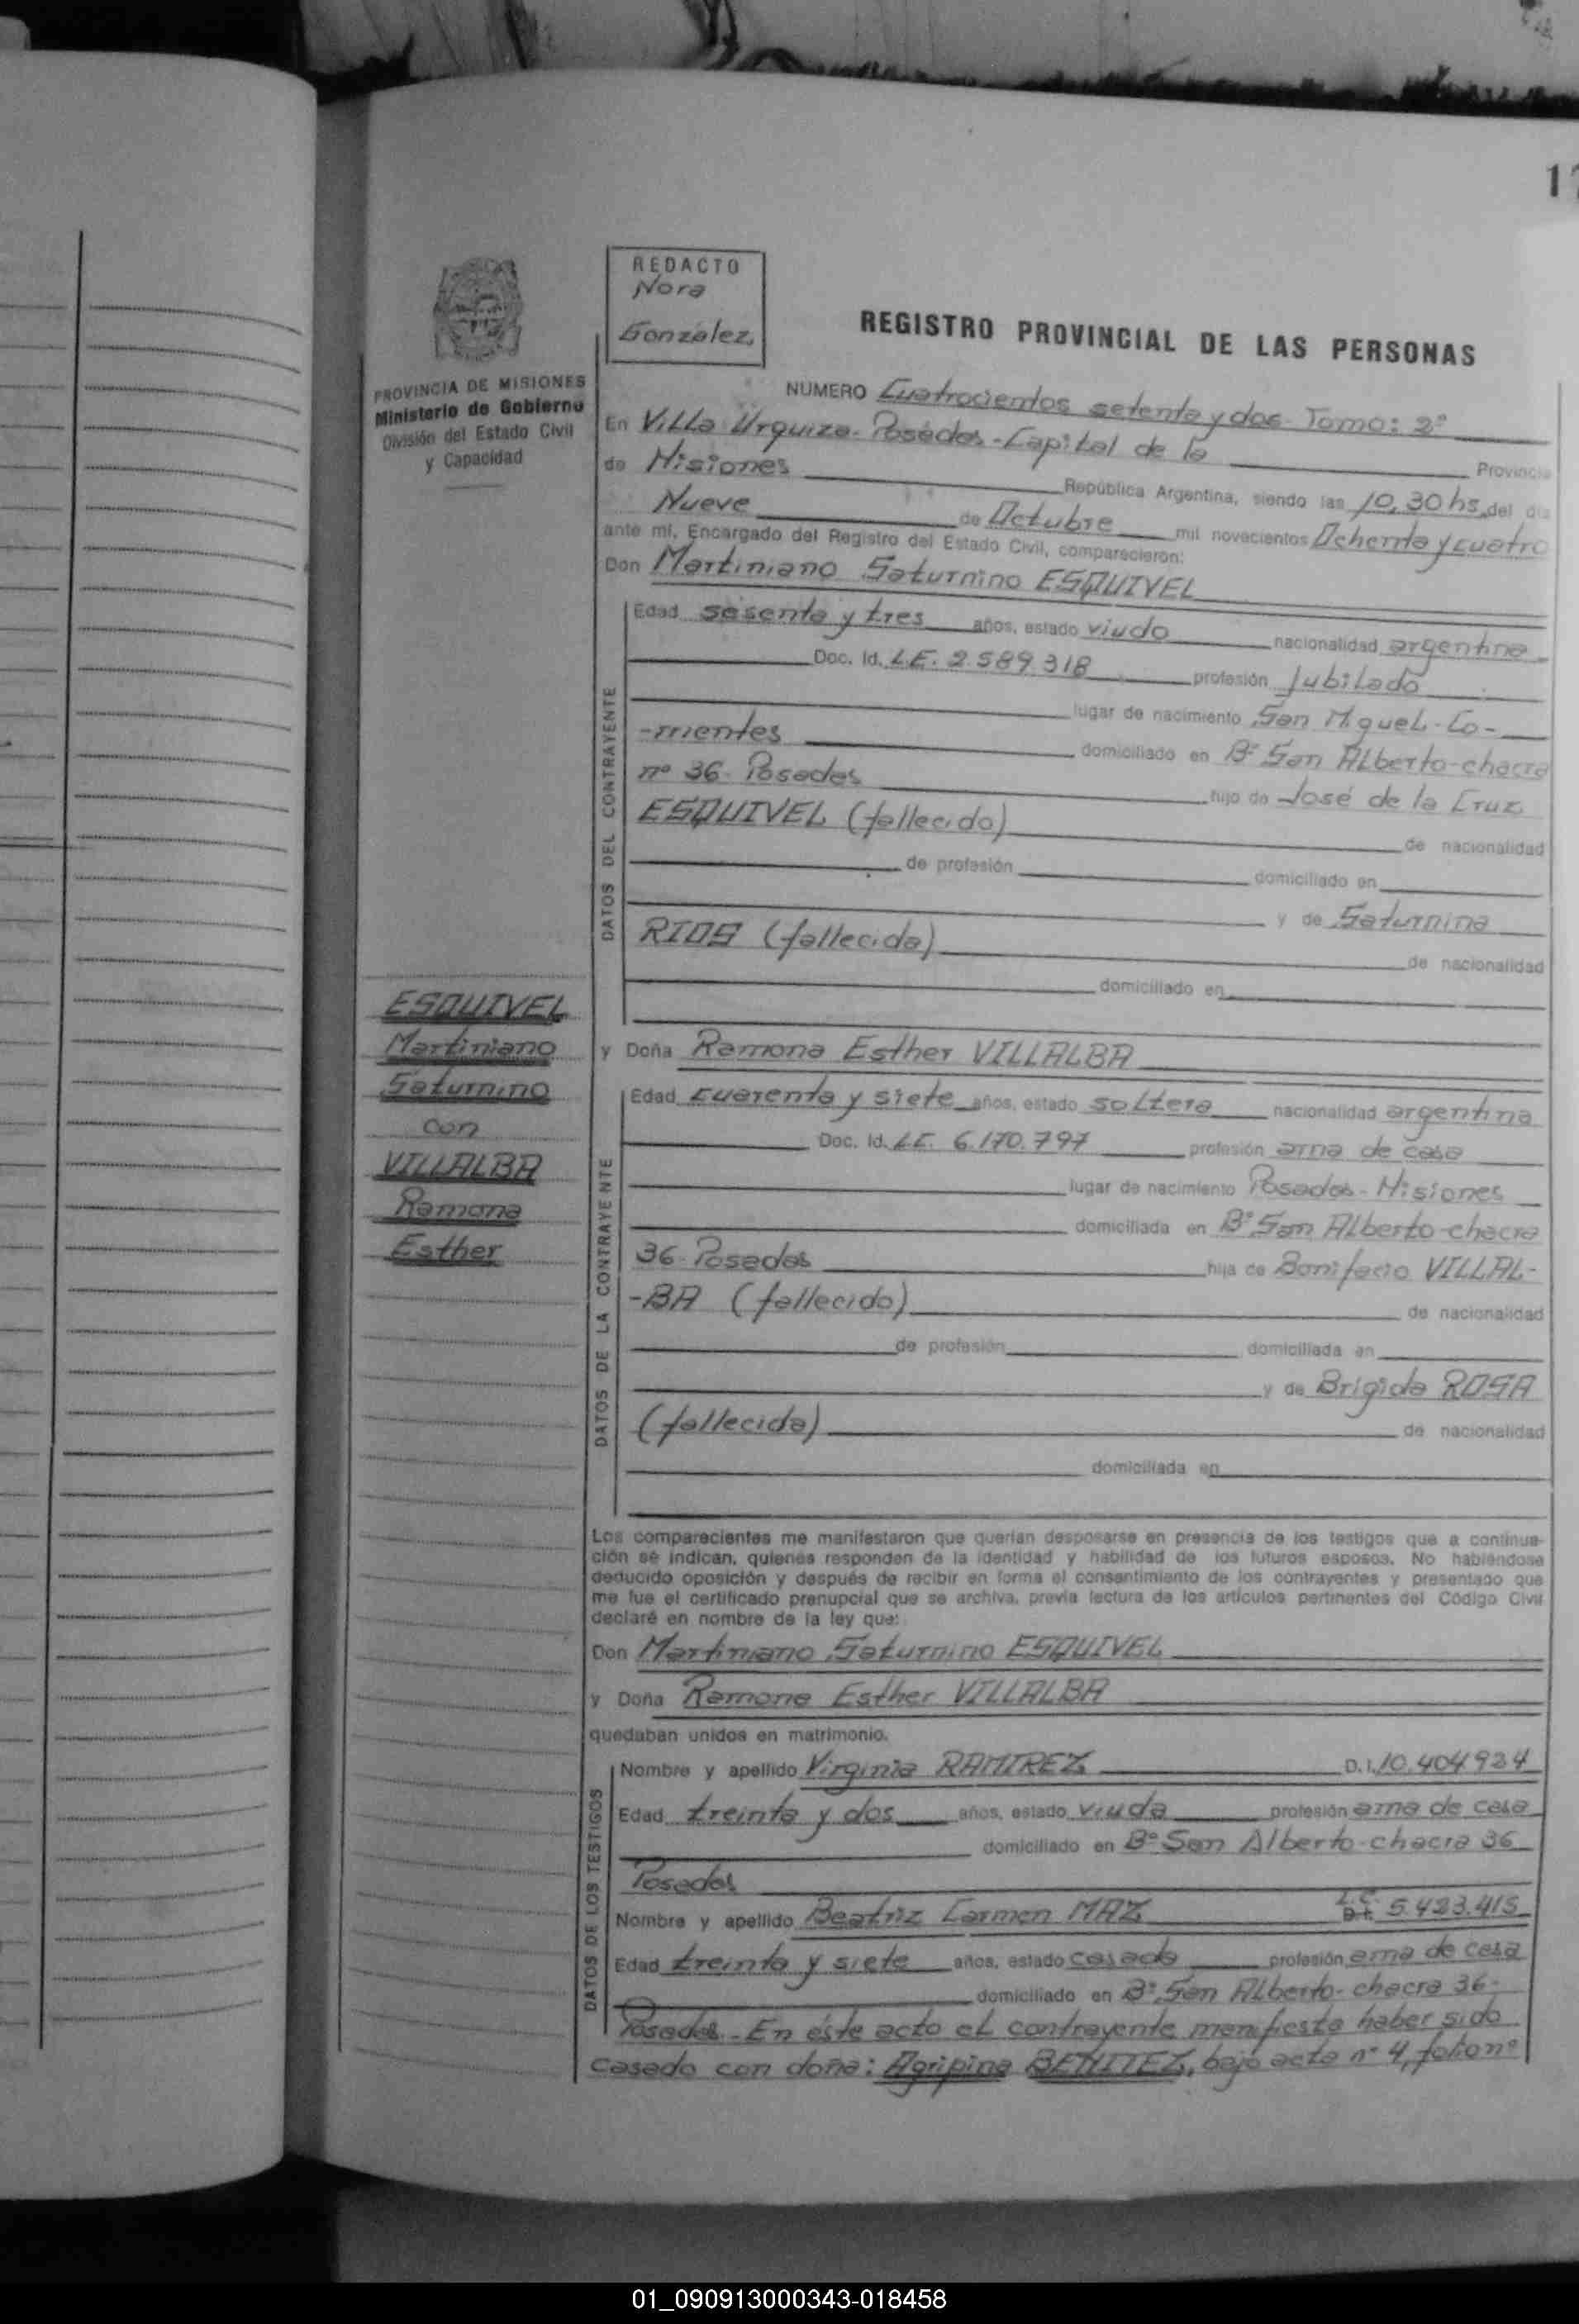 17
REDACTO
Nora
González
REGISTRO PROVINCIAL DE LAS PERSONAS
PROVINCIA DE MISIONES
Ministerio de Gobierno
División del Estado Civil
y Capacidad
NUMERO Cuatrocientos setenta y dos - Tomo: 2º
En Villa Urquiza - Posadas - Capital de la Provincia
de Misiones República Argentina, siendo las 10,30 hs. del día
Nueve de Octubre mil novecientos Ochenta y cuatro
ante mí, Encargado del Registro del Estado Civil, comparecieron:
Don Martiniano Saturnino ESQUIVEL
DATOS DEL CONTRAYENTE
Edad sesenta y tres años, estado viudo nacionalidad argentina
Doc. Id. L.E. 2.589.318 profesión Jubilado
lugar de nacimiento San Miguel - Co-
-rrientes domiciliado en Bº San Alberto - chacra
nº 36 - Posadas hijo de José de la Cruz
ESQUIVEL (fallecido) de nacionalidad
de profesión domiciliado en
y de Saturnina
RIOS (fallecida) de nacionalidad
domiciliado en
ESQUIVEL
Martiniano
Saturnino
con
VILLALBA
Ramona
Esther
y Doña Ramona Esther VILLALBA
DATOS DE LA CONTRAYENTE
Edad cuarenta y siete años, estado soltera nacionalidad argentina
Doc. Id. L.C. 6.170.797 profesión ama de casa
lugar de nacimiento Posadas - Misiones
domiciliada en Bº San Alberto - chacra
36 - Posadas hija de Bonifacio VILLAL-
-BA (fallecido) de nacionalidad
de profesión domiciliada en
y de Brígida ROSA
(fallecida) de nacionalidad
domiciliada en
Los comparecientes me manifestaron que querían desposarse en presencia de los testigos que a continua-
ción se indican, quienes responden de la identidad y habilidad de los futuros esposos. No habiéndose
deducido oposición y después de recibir en forma el consentimiento de los contrayentes y presentado que
me fue el certificado prenupcial que se archiva, previa lectura de los artículos pertinentes del Código Civil
declaré en nombre de la ley que:
Don Martiniano Saturnino ESQUIVEL
y Doña Ramona Esther VILLALBA
quedaban unidos en matrimonio.
DATOS DE LOS TESTIGOS
Nombre y apellido Virginia RAMIREZ D.I. 10.404.924
Edad treinta y dos años, estado viuda profesión ama de casa
domiciliado en Bº San Alberto - chacra 36
Posadas
Nombre y apellido Beatriz Carmen MAZ L.C. D.I. 5.423.415
Edad treinta y siete años, estado casada profesión ama de casa
domiciliado en Bº San Alberto - chacra 36 -
Posadas - En éste acto el contrayente manifiesta haber sido
casado con doña: Agripina BENITEZ, bajo acta nº 4, folio nº
01_090913000343-018458